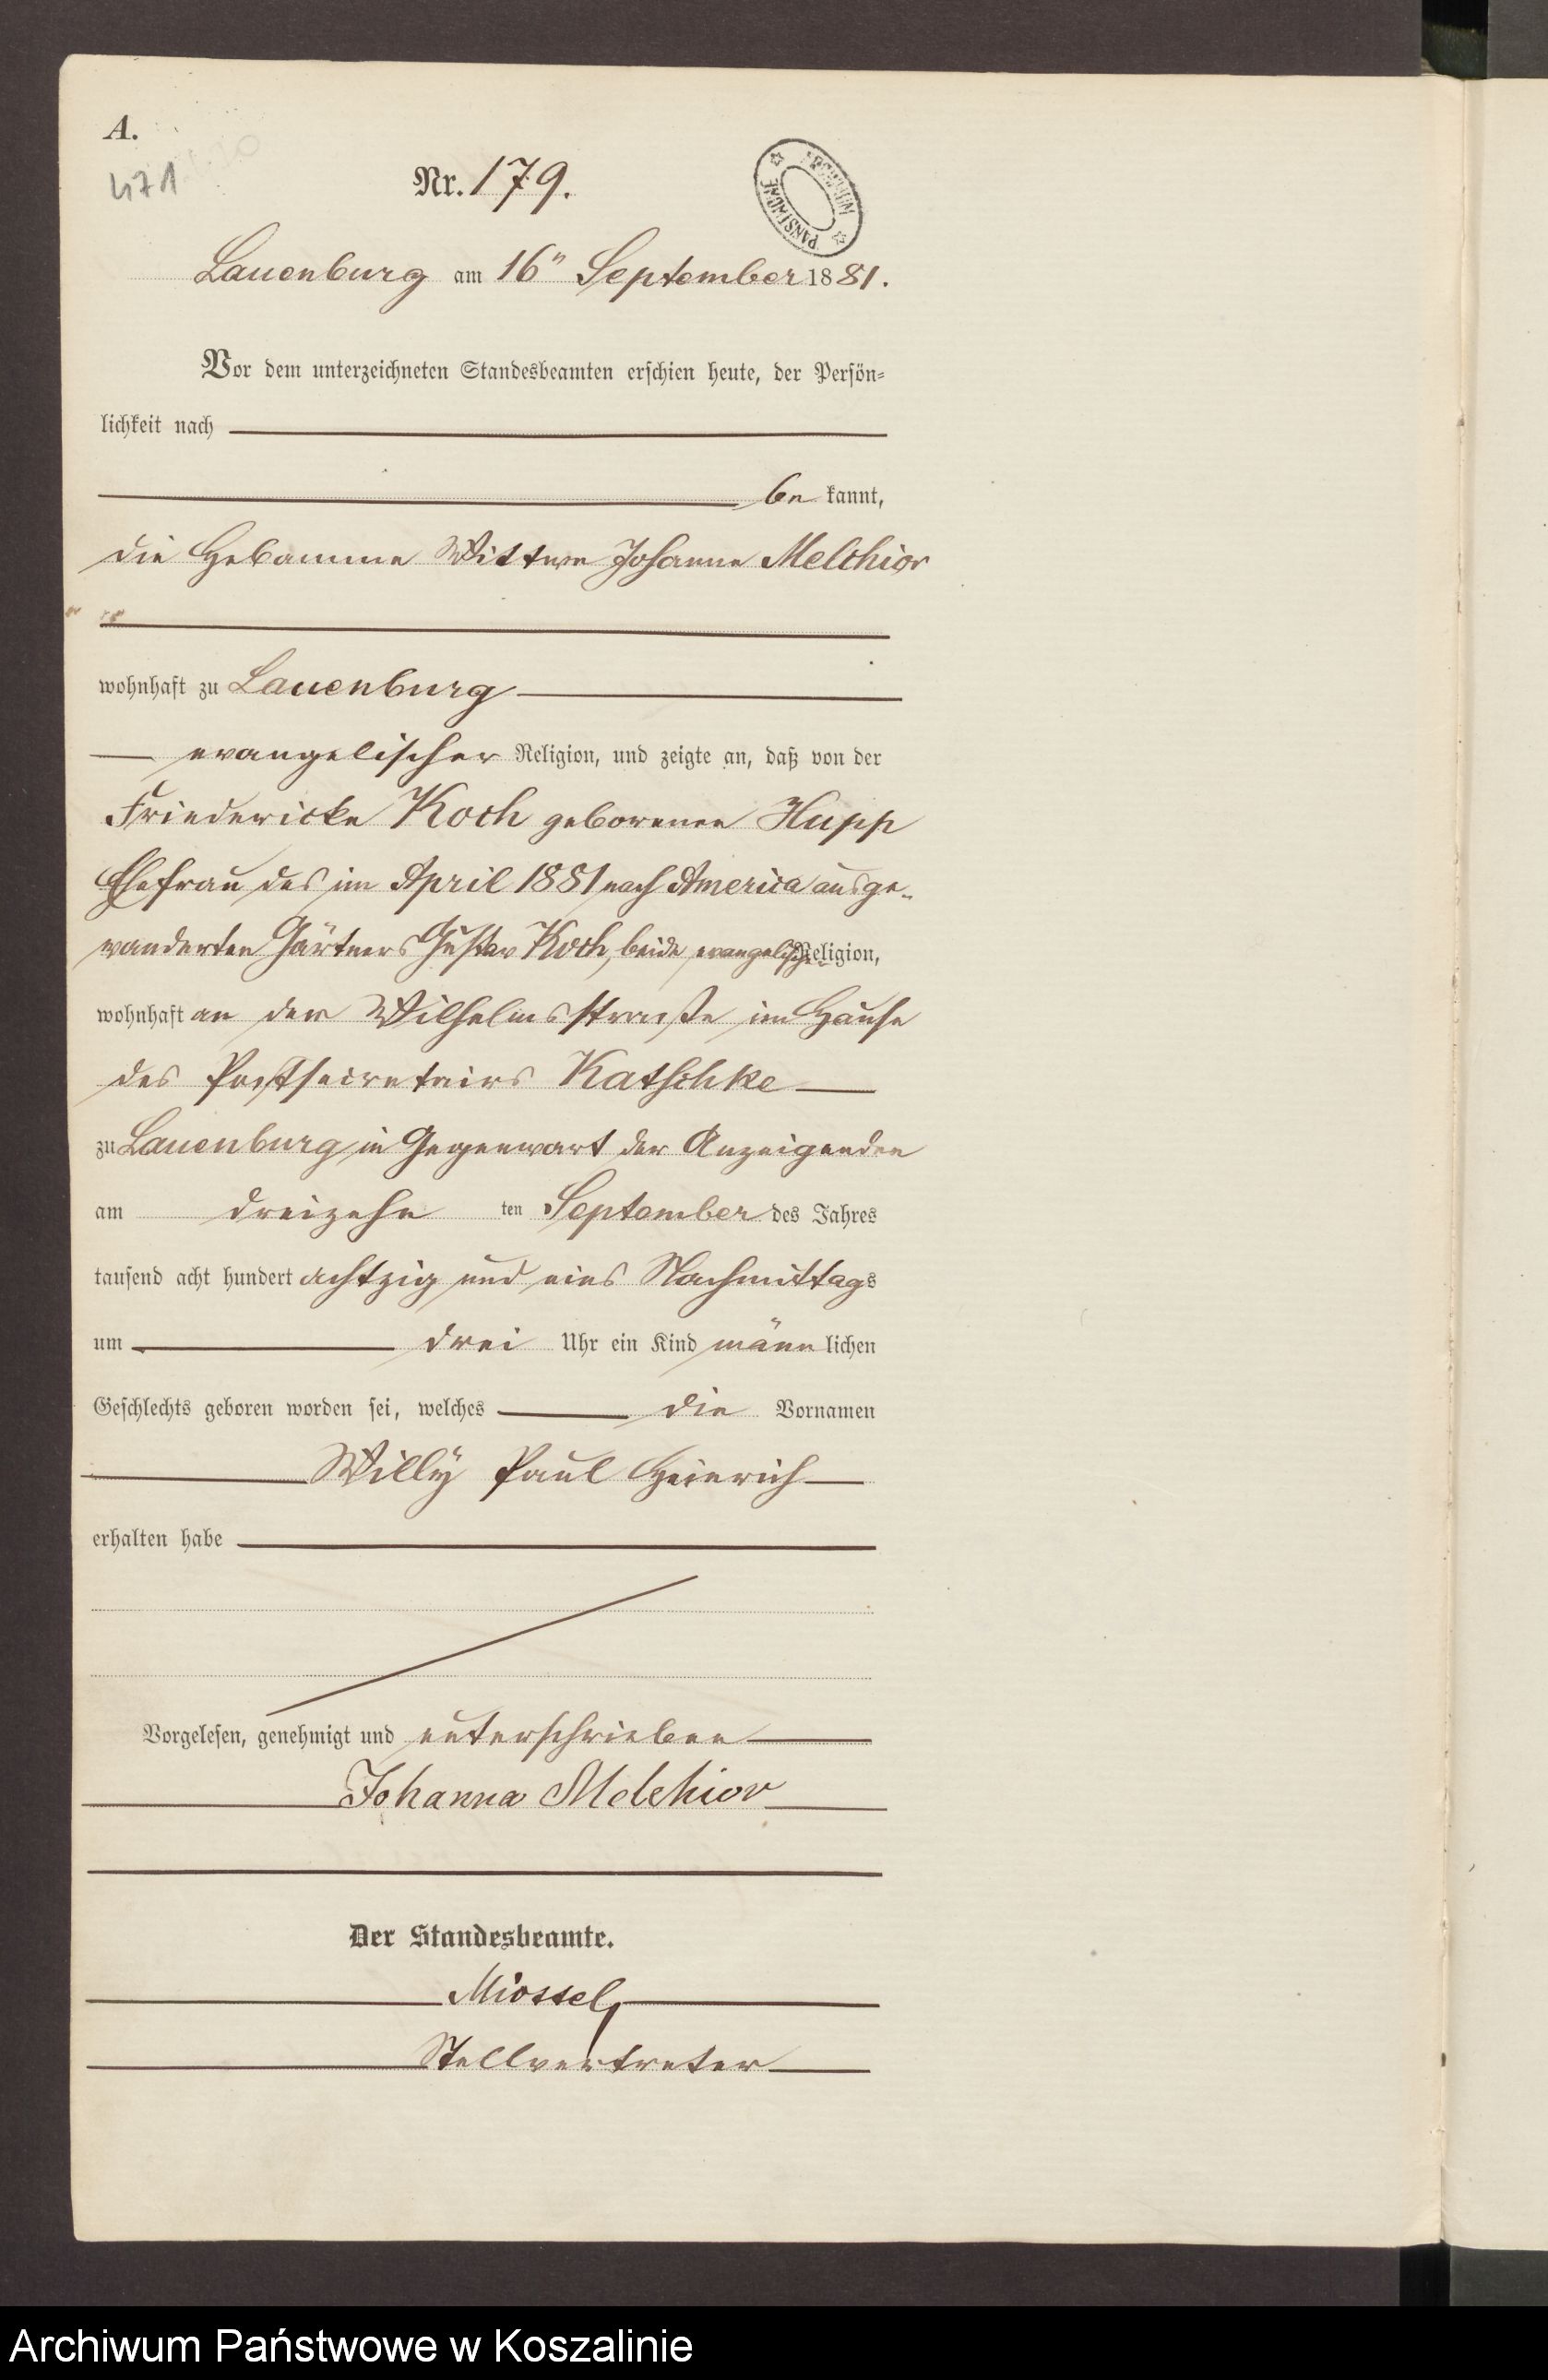 A.
471
Nr. 179.
ARCHIWUM PAŃSTWOWE
Lauenburg am 16" September 1881.
Vor dem unterzeichneten Standesbeamten erschien heute, der Persön-
lichkeit nach
be kannt,
die Hebamme Wittwe Johanne Melchior
wohnhaft zu Lauenburg
evangelischer Religion, und zeigte an, daß von der
Friedericke Koch geborenen Hupp
Ehefrau des im April 1881 nach America ausge-
wanderten Gärtners Gustav Koch, beide evangelischer Religion,
wohnhaft an der Wilhelmsstraße im Hause
des Postsecretairs Katschke
zu Lauenburg in Gegenwart der Anzeigenden
am dreizehn ten September des Jahres
tausend acht hundert achtzig und eins Nachmittags
um drei Uhr ein Kind männ lichen
Geschlechts geboren worden sei, welches die Vornamen
Willy Paul Heinrich
erhalten habe
Vorgelesen, genehmigt und unterschrieben
Johanna Melchior
Der Standesbeamte.
Stellvertreter
Archiwum Państwowe w Koszalinie